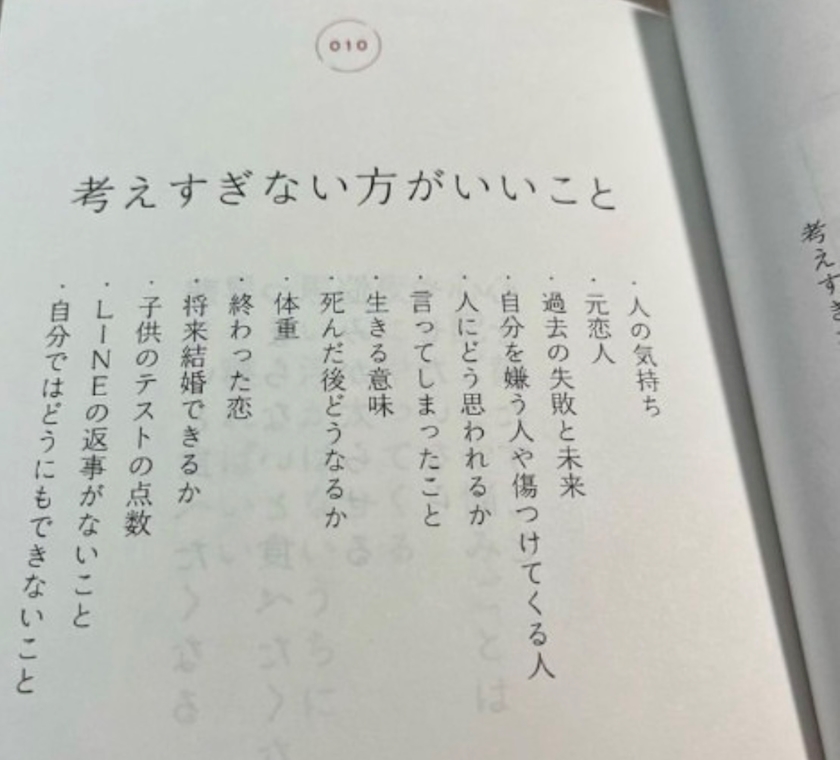 010
考えすぎない方がいいこと
・人の気持ち
・元恋人
・過去の失敗と未来
・自分を嫌う人や傷つけてくる人
・人にどう思われるか
・言ってしまったこと
・生きる意味
・死んだ後どうなるか
・体重
・終わった恋
・将来結婚できるか
・子供のテストの点数
・LINEの返事がないこと
・自分ではどうにもできないこと
考えすぎ